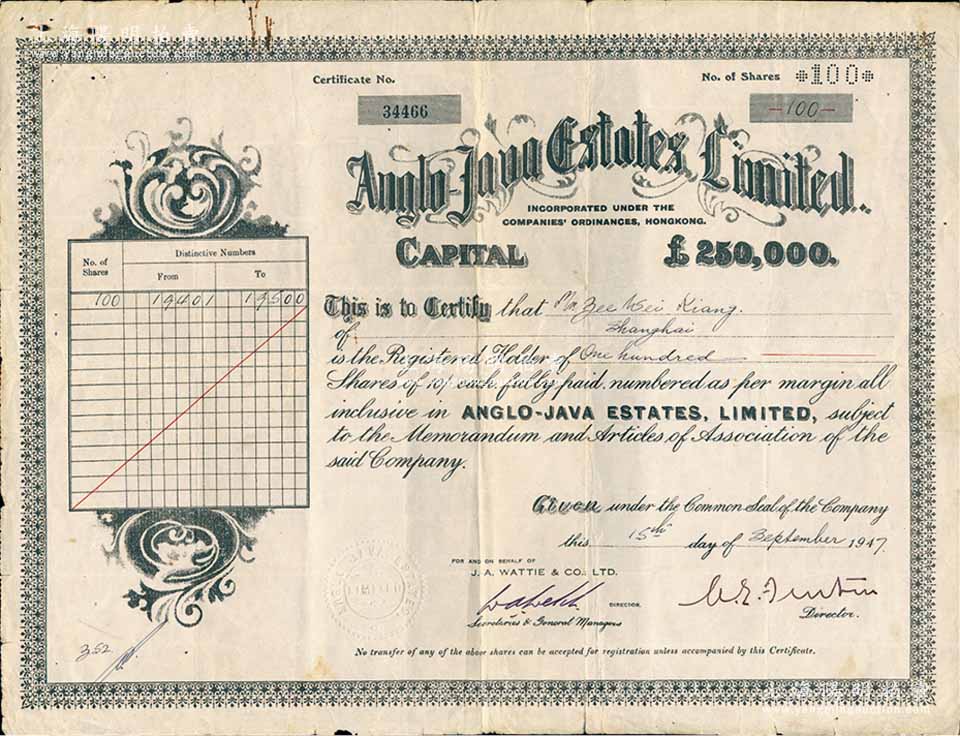 Certificate No.
34466
No. of Shares *100*
—100—
Anglo-Java Estates, Limited.
INCORPORATED UNDER THE
COMPANIES' ORDINANCES, HONGKONG.
CAPITAL £250,000.
No. of Shares
Distinctive Numbers
From To
100 19401 19500
This is to Certify that Mr. Zee Wei Kiang.
of Shanghai
is the Registered Holder of One hundred
Shares of 10/- each, fully paid, numbered as per margin all
inclusive in ANGLO-JAVA ESTATES, LIMITED, subject
to the Memorandum and Articles of Association of the
said Company.
Given under the Common Seal of the Company
this 15th day of September 1947.
FOR AND ON BEHALF OF
J. A. WATTIE & CO., LTD.
DIRECTOR.
Secretaries & General Managers
Director.
352
No transfer of any of the above shares can be accepted for registration unless accompanied by this Certificate.